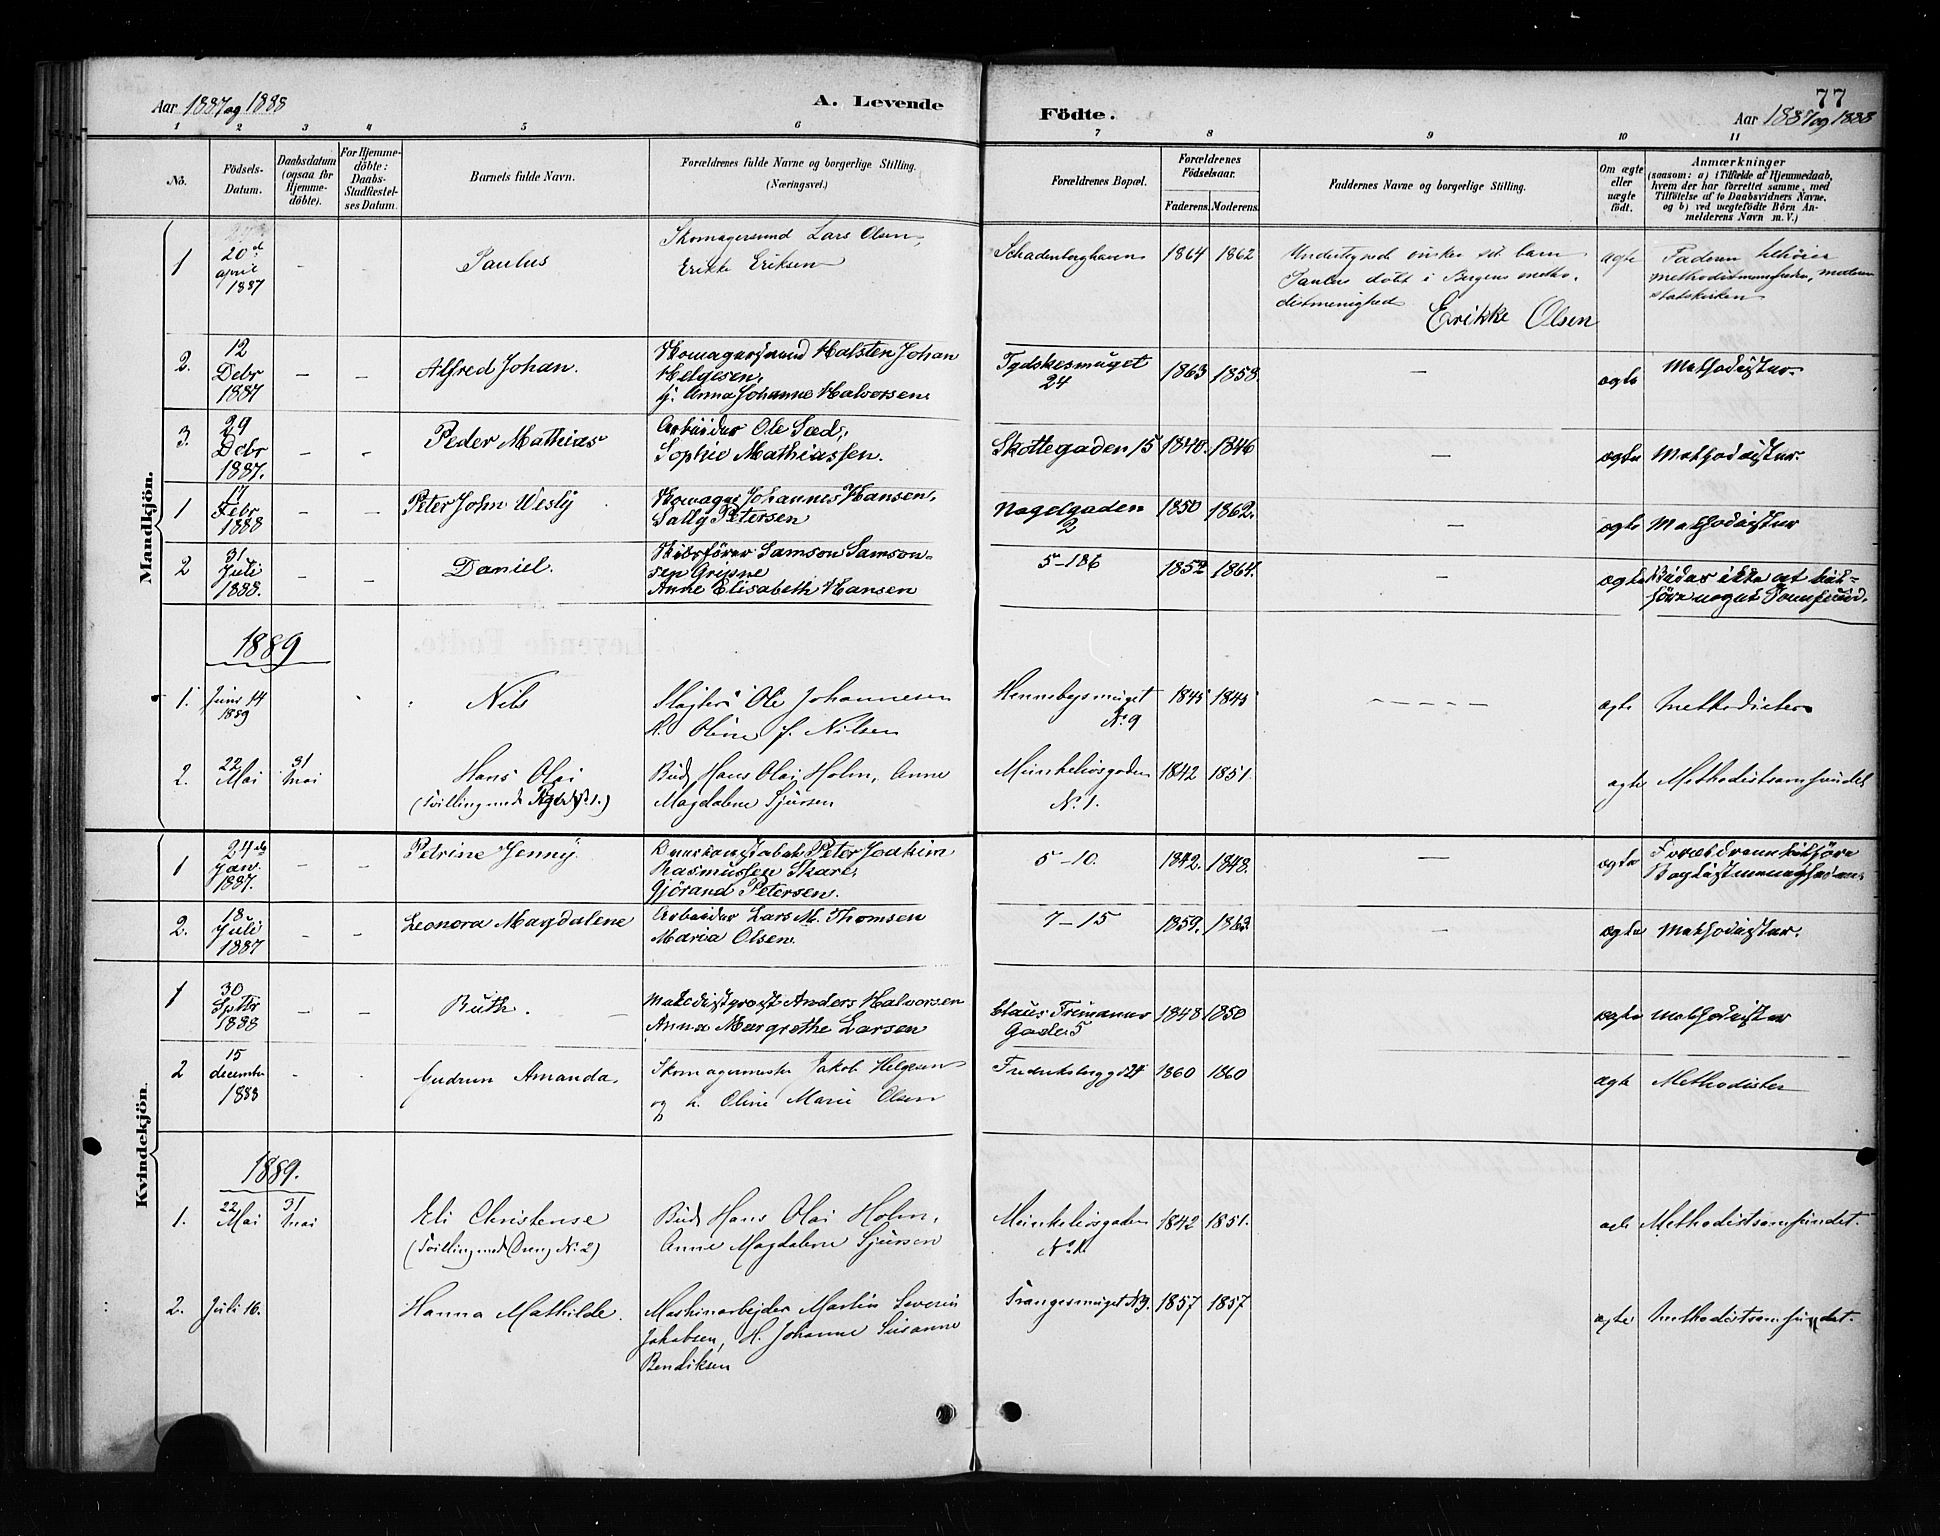 Aar 1887 og 1888
A. Levende
Födte.
77
Aar 1887 og 1888
1 2 3 4 5 6 7 8 9 10 11
No.
Födsels-
Datum.
Daabsdatum
(ogsaa for
Hjemme-
döbte).
For Hjemme-
döbte:
Daabs-
Stadfæstel-
ses Datum.
Barnets fulde Navn.
Forældrenes fulde Navne og borgerlige Stilling.
(Næringsvei.)
Forældrenes Bopæl.
Forældrenes
Födselsaar.
Faderens. Moderens.
Faddernes Navne og borgerlige Stilling.
Om ægte
eller
uægte
födt.
Anmærkninger
(saasom: a) i Tilfælde af Hjemmedaab,
hvem der har forrettet samme, med
Tilföielse af to Daabsvidners Navne,
og b) ved uægtefödte Börn An-
melderens Navn m. V.)
Mandkjön.
1 20de april 1887 - - Paulus
Skomagersvend Lars Olsen,
Erikke Eriksen
1864 1862
Undertegnede önsker sit barn
Paulus döbt i Bergens metho-
distmenighed Erikke Olsen
ægte
Faderen tilhörer
methodistmenigheden, moderen
statskirken
2. 12 Debr 1887 - - Alfred Johan.
Skomagersvend Halsten Johan
Helgesen,
h. Anna Johanne Halvorsen.
Tydskesmuget
24
1863 1858. - ægte Methodister.
3. 29 Debr 1887. - - Peder Mathias
Arbeider Ole Sæd,
Sophie Mathiassen.
Skottegaden 15 1840. 1846 - ægte Methodister.
1 17 Febr 1888 - - Peter John Wesly
Skomager Johannes Hansen,
Sally Petersen
Nagelgaden
2
1850 1862. - ægte Methodister
2 31 Juli 1888. - - Daniel.
Samson Samson-
sen Gripne
Anne Elisabeth Hansen
5-186 1852 1864. - ægte
ikke at tilh-
höre noget Samfund.
1889
1. Juni 14 1889 Nils
Slagter Ole Johannesen
H. Oline f. Nilsen
smuget
No 9
1845 1845 - - - - - ægte Methodister
2. 22 Mai 31 Mai Hans Olai
(Tvilling med Pige No 1.)
Bud Hans Olai Holm, Anne
Magdalene Sjursen
Munkeliosgaden
No 1.
1842 1851. ægte Methodistsamfundet
Kvindekjön.
1 24de Jan. 1887. - - Petrine Jenny.
Peter Joakim
Rasmussen Skare,
Gjörand Petersen.
5-10. 1842. 1848. - ægte
Forældrene tilhöre
Baptistmenigheden
2. 18 Juli 1887 - - Leonora Magdalene
Arbeider Lars M. Thomsen
Maria Olsen.
7-15 1859. 1863. - ægte Methodister.
1 30 Septbr 1888 - - Ruth. -
Methodistpræst Anders Halvorsen
Anna Margrethe Larsen
Claus Frimanns
Gade 5
1848 1850 ægte Methodister
2 15 december 1888 - - Gudrun Amanda.
Skomagermester Jakob Helgesen
og h. Oline Marie Olsen
Frederiksbergg 24 1860 1860 ægte Methodister
1889.
1. 22 Mai 31 Mai Eli Christense
(Tvilling med Dreng No 2)
Bud Hans Olai Holm,
Anne Magdalene Sjursen
Munkeliosgaden
No 1.
1842 1851. Methodistsamfundet.
2. Juli 16. Hanna Mathilde.
Maskinarbejder Martin Severin
Jakobsen, H. Johanne Susanne
Bendiksen
Trangesmuget No 9. 1857 1857 ægte Methodistsamfundet.